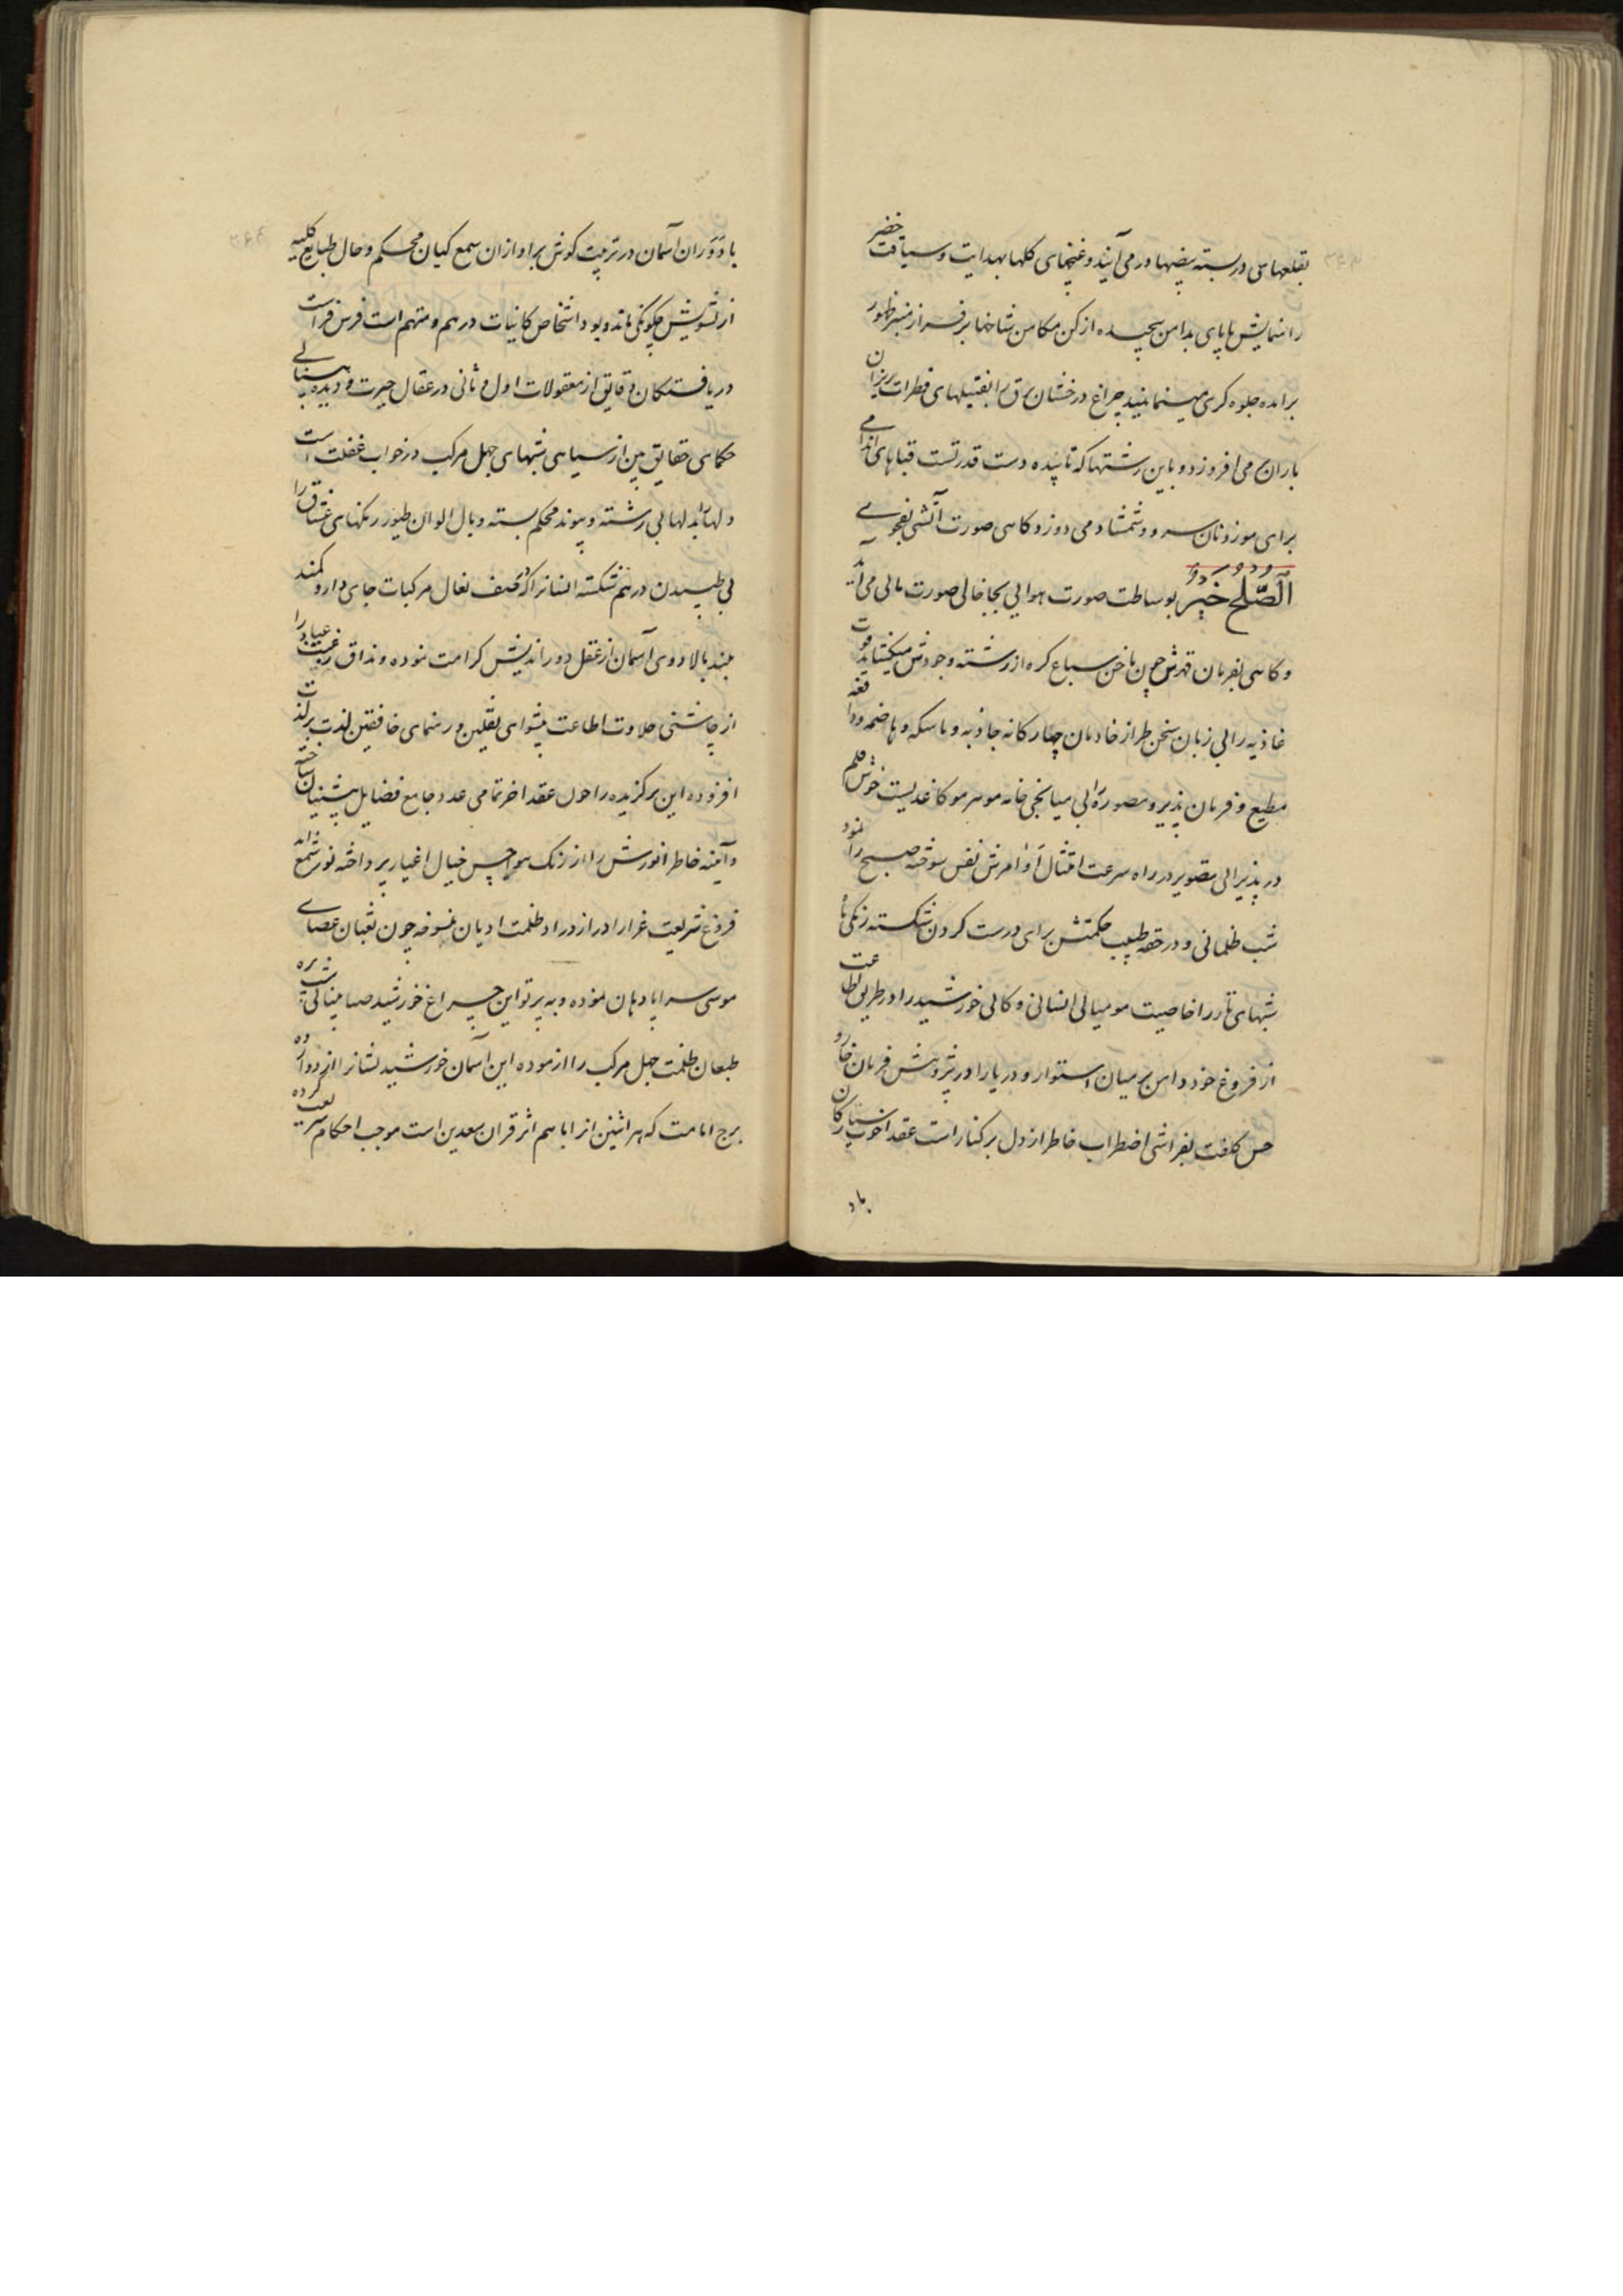 بقلعهای دربسته بیضها درمی آیند و غنچهای گلها بهدایت و سیاقت خضر
را نمایش با پای بدامن پیچیده از کن مکامن شاخها بر فراز منبر ظهور
برآمده جلوه کری مینمایند چراغ درخشان برق را بفتیلهای قطرات ریزان
باران می افروزد و باین رشتها که تابیده دست قدرتست قباهای اندامی
برای موزونان سرو و شمشاد می دوزد و کاهی صورت آتشی بفحوی
الصّلح خیر بوساطت صورت هوایی بجا خالی صورت مائی می آید
و کاهی بفرمان قهرش چون ناخن سباع کره از رشته وجودش میکشاید قوت
غاذیه را بی زبان سخن طراز خادمان چهارکانه جاذبه و ماسکه و هاضمه و دافعه
مطیع و فرمان پذیر و مصوره را بی میانجی خامه مو سر مو کاغذیست خوش قلم
در پذیرائی تصویر در راه سرعت امتثال اوامرش نفس سوخته صبح را نمود
شب ظلمانی و در حقه طبیب حکمتش برای درست کردن شکسته رنکی ها
شبهای تار را خاصیت مومیائی انسانی و کانی خورشید را در طریق اطاعت
از فروغ خود دامن بر میان استوار و دریا را در پژوهش فرمان خار و
خس کلفت بفراشی اضطراب خاطر از دل بر کنار است عقد اخوت ارکان
باد
با دَوَران آسمان در تربیت کوش بر اوازان سمع کیان محکم و حال طبایع کلیه
از تشویش چکونکی ماند و بود اشخاص کائنات درهم و متهم است فرس فراست
دریافتکان دقایق از معقولات اول و ثانی در عقال حیرت و دیده بینائی
حکمای حقایق بین از سیاهی شبهای جهل مرکب در خواب غفلت است
دلها بدلها بی رشته و پیوند محکم بسته و بال الوان طیور رنکهای عشاق را
بی طپیدن درهم شکسته انسانرا که در صف نعال مرکبات جای دارد کمند
بلند بالا دوی آسمان از عقل دوراندیش کرامت نموده و مذاق رغبت عباد را
از چاشنی حلاوت اطاعت پیشوای ثقلین و رهنمای خافقین لذت بر لذت
افزوده این برکزیده را چون عقد اخر تمامی عدد جامع فضایل پیشینیان ساخته
و آینه خاطر انورش را از زنک هواجس خیال اغیار پرداخته نور شمع زاید
فروغ شریعت غرا را در ازدراد ظلمت ادیان منسوخه چون ثعبان عصای
موسی سراپا دهان نموده و به پرتو این چراغ خورشید ضیا بینائی شپره
طبعان ظلمت جهل مرکب را ازموده این آسمان خورشید نشانرا از دوازده
برج امامت که هر اثنین از اباهم اثر قران سعدین است موجب احکام شریعت کرده